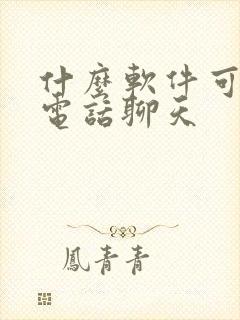 什麼軟件可
電話聊天
鳳青青